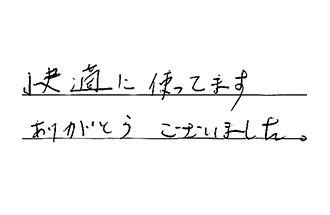 快適に使ってます
ありがとうございました。